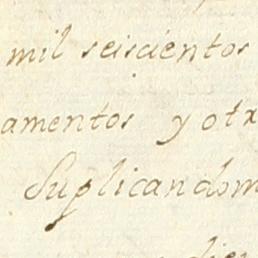 mil seiscientos
amentos y otr
Suplicandom